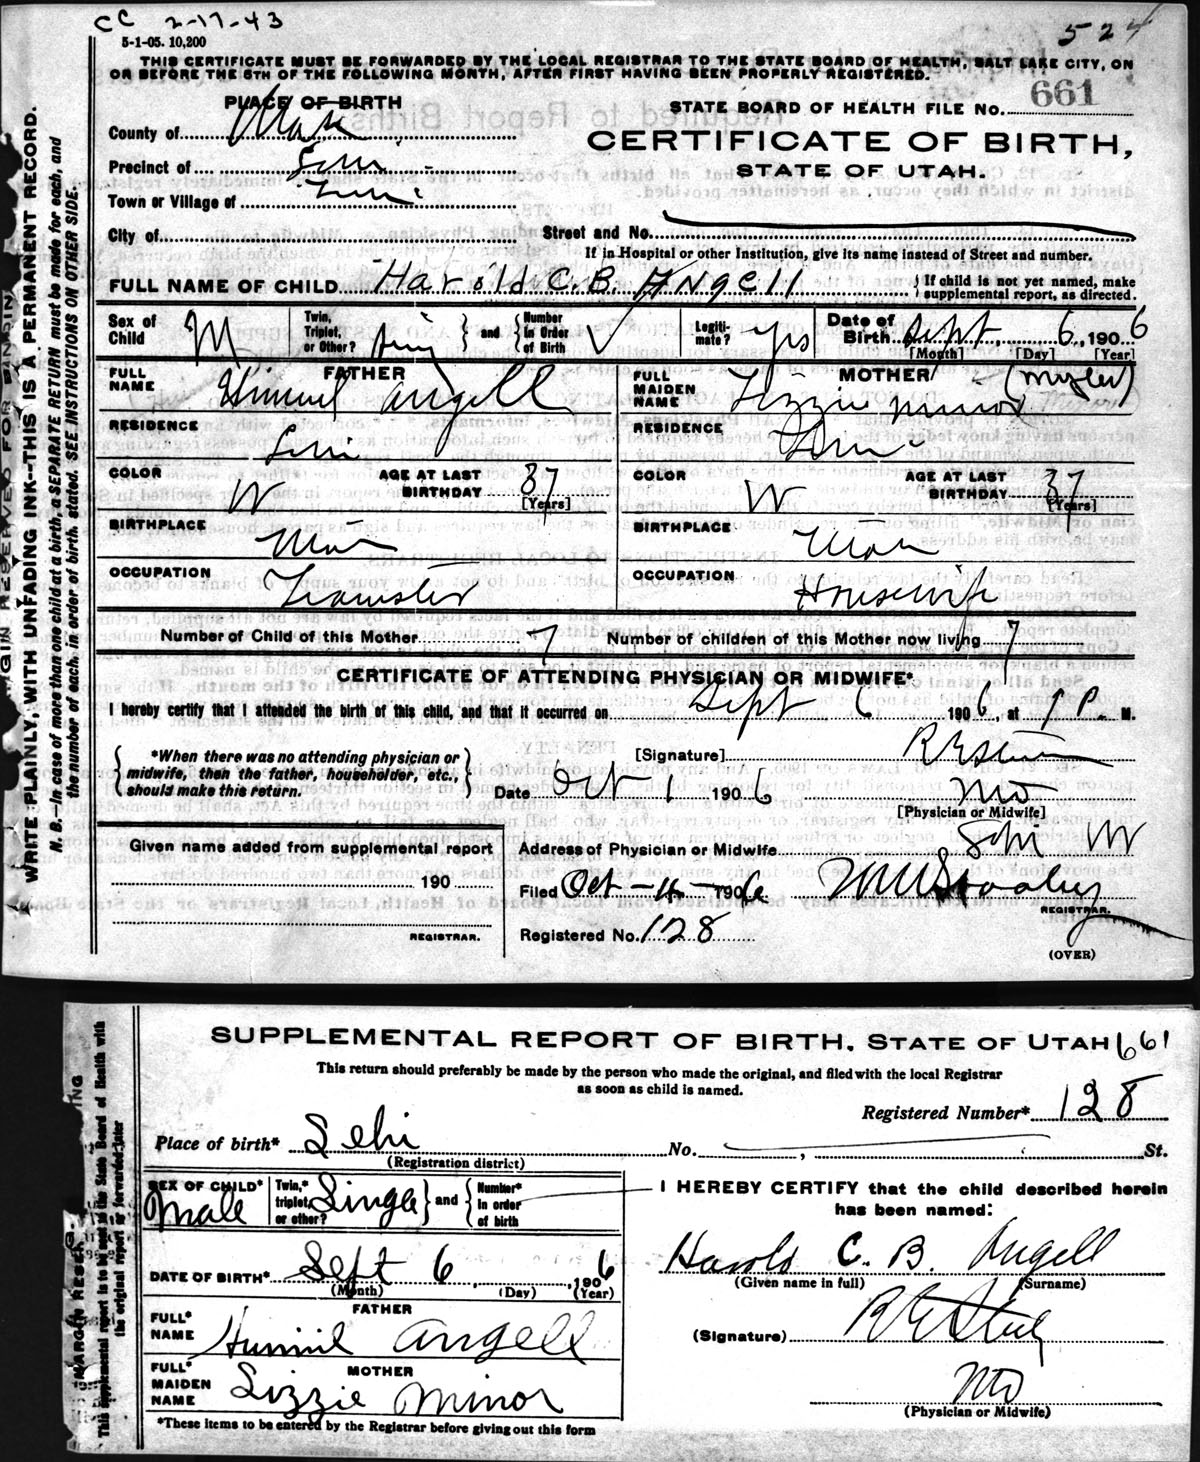 CC 2-17-43
524
5-1-05. 10,200
THIS CERTIFICATE MUST BE FORWARDED BY THE LOCAL REGISTRAR TO THE STATE BOARD OF HEALTH, SALT LAKE CITY, ON
OR BEFORE THE 5TH OF THE FOLLOWING MONTH, AFTER FIRST HAVING BEEN PROPERLY REGISTERED.
MARGIN RESERVED FOR BINDING
WRITE PLAINLY, WITH UNFADING INK--THIS IS A PERMANENT RECORD.
N. B.--In case of more than one child at a birth, a SEPARATE RETURN must be made for each, and
the number of each, in order of birth, stated. SEE INSTRUCTIONS ON OTHER SIDE.
PLACE OF BIRTH
County of Utah
Precinct of Lehi
Town or Village of Lehi
City of
STATE BOARD OF HEALTH FILE No. 661
CERTIFICATE OF BIRTH,
STATE OF UTAH.
Street and No.
If in Hospital or other Institution, give its name instead of Street and number.
FULL NAME OF CHILD Harold C. B. Angell
If child is not yet named, make
supplemental report, as directed.
Sex of Child M
Twin, Triplet, or Other? and Number in Order of Birth
Legitimate? yes
Date of Birth Sept 6, 1906
[Month] [Day] [Year]
FATHER
FULL NAME Angell
RESIDENCE Lehi
COLOR W AGE AT LAST BIRTHDAY 37 [Years]
BIRTHPLACE Utah
OCCUPATION Teamster
MOTHER
FULL MAIDEN NAME Lizzie Minor
RESIDENCE Lehi
COLOR W AGE AT LAST BIRTHDAY 37 [Years]
BIRTHPLACE Utah
OCCUPATION Housewife
Number of Child of this Mother 7 Number of children of this Mother now living 7
CERTIFICATE OF ATTENDING PHYSICIAN OR MIDWIFE*
I hereby certify that I attended the birth of this child, and that it occurred on Sept 6 1906, at P. M.
*When there was no attending physician or
midwife, then the father, householder, etc.,
should make this return.
[Signature]
Date Oct 1 1906 MD
[Physician or Midwife]
Given name added from supplemental report
190
REGISTRAR.
Address of Physician or Midwife Lehi
Filed Oct-4-1906
REGISTRAR.
Registered No. 128
(OVER)
SUPPLEMENTAL REPORT OF BIRTH, STATE OF UTAH 661
This return should preferably be made by the person who made the original, and filed with the local Registrar
as soon as child is named.
Registered Number* 128
Place of birth* Lehi No. , St.
(Registration district)
SEX OF CHILD* Male
Twin,* triplet, or other? Single and Number* in order of birth
DATE OF BIRTH* Sept 6, 1906
(Month) (Day) (Year)
FATHER
FULL* NAME Angell
MOTHER
FULL* MAIDEN NAME Lizzie Minor
*These items to be entered by the Registrar before giving out this form
I HEREBY CERTIFY that the child described herein
has been named:
Harold C. B. Angell
(Given name in full) (Surname)
(Signature)
MD
(Physician or Midwife)
This supplemental report to be sent to State Board of Health with
the original report or forwarded later